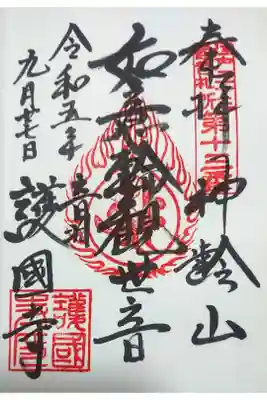 奉拝 神齢山
札所第十三番
如意輪観世音
音羽 護國寺
令和五年
九月十七日
護國